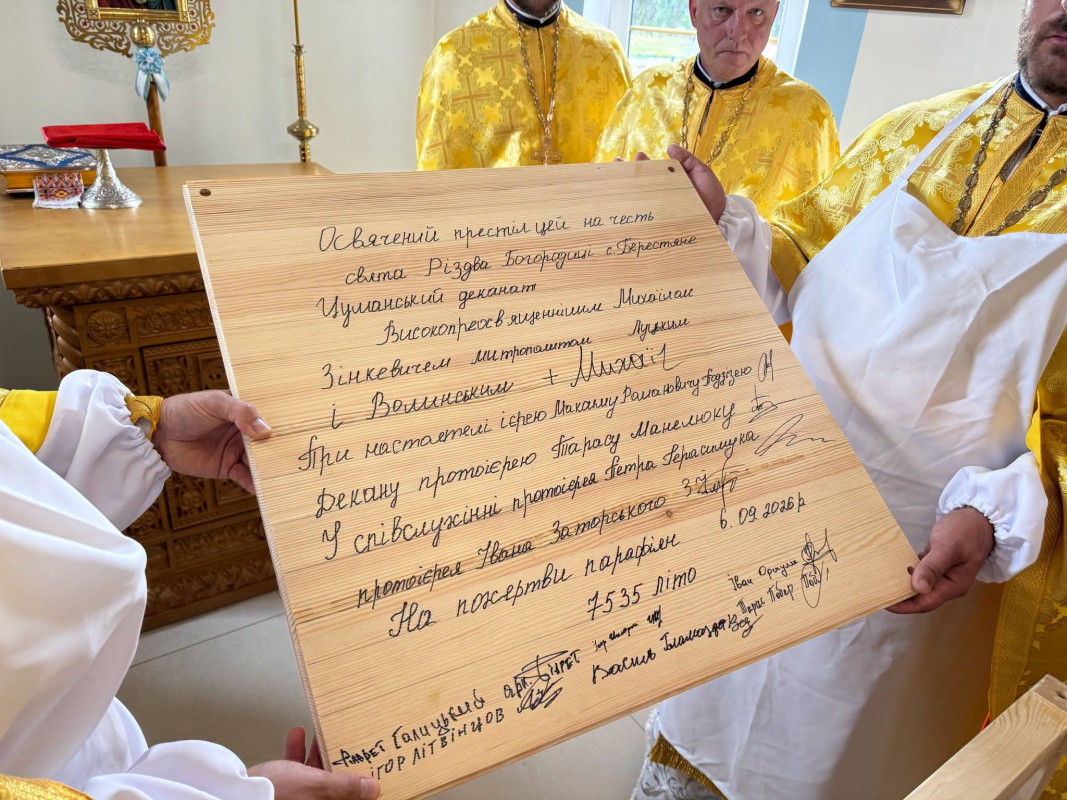 Освячений престіл цей на честь
свята Різдва Богородиці с. Берестяне
Цуманський деканат
Високопреосвященнішим Михаїлом
Зінкевичем митрополитом Луцьким
і Волинським + Михаїл
При настоятелі ієрею Макарию Романовичу
Декану протоієрею Тарасу Манелюку
У співслужінні протоієрея Петра Герасимука
протоієрея Івана Заторського
На пожертви парафіян 6.09.2026р
7535 літо
Іван
Тарас
Василь
Філарет Галицький
ІГОР ЛІТВІНЦОВ